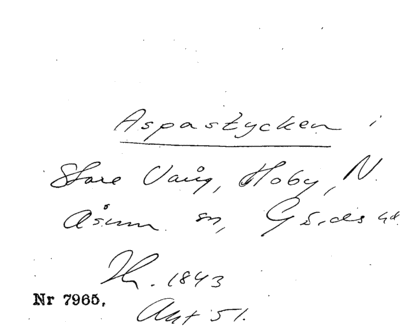 Aspastycken i
Store Vång, Hoby, N.
Åsum sn, Gärds hd.
1843
Nr 7965.
Akt 51.